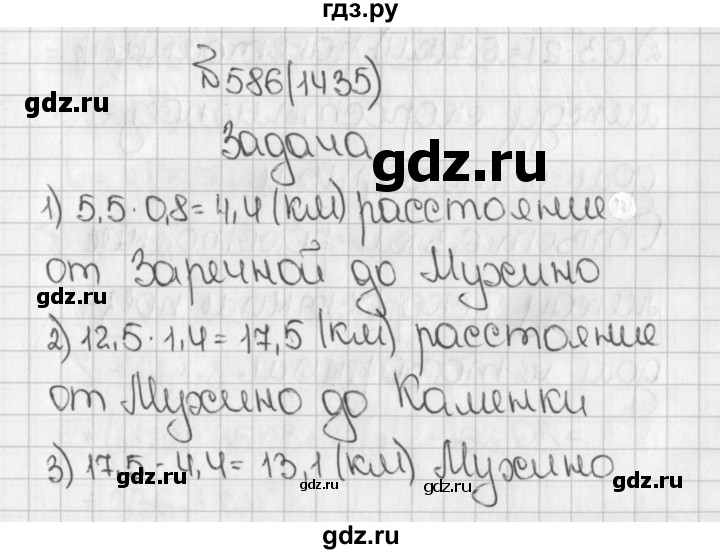 гдз.ру
№586(1435)
Задача
gdz.ru
1) 5,5·0,8=4,4 (км) расстояние
от Заречной до Мухино
gdz.ru
2) 12,5·1,4=17,5 (км) расстояние
от Мухино до Каменки
3) 17,5-4,4=13,1 (км) Мухино
gdz.ru gdz.ru gdz.ru
gdz.ru